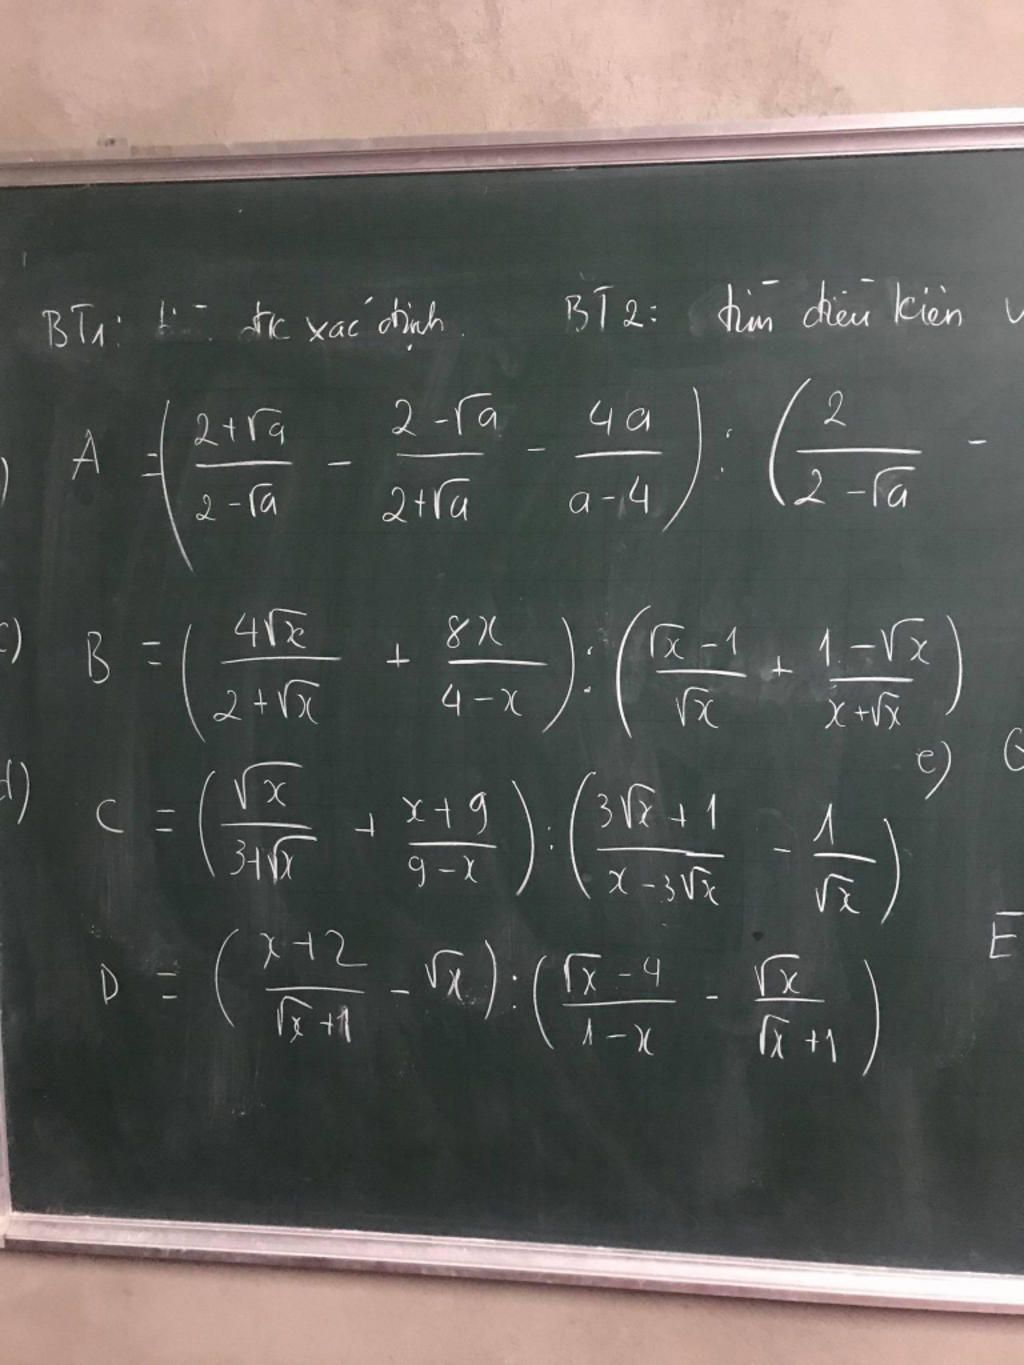 BT1: đk xác định. BT2: tìm điều kiện
) A = ( (2+√a)/(2-√a) - (2-√a)/(2+√a) - 4a/(a-4) ) : ( 2/(2-√a) -
c) B = ( 4√x/(2+√x) + 8x/(4-x) ) : ( (√x-1)/√x + (1-√x)/(x+√x) )
e) G
d) C = ( √x/(3+√x) + (x+9)/(9-x) ) : ( (3√x+1)/(x-3√x) - 1/√x )
E
D = ( (x+2)/(√x+1) - √x ) : ( (√x-4)/(1-x) - √x/(√x+1) )